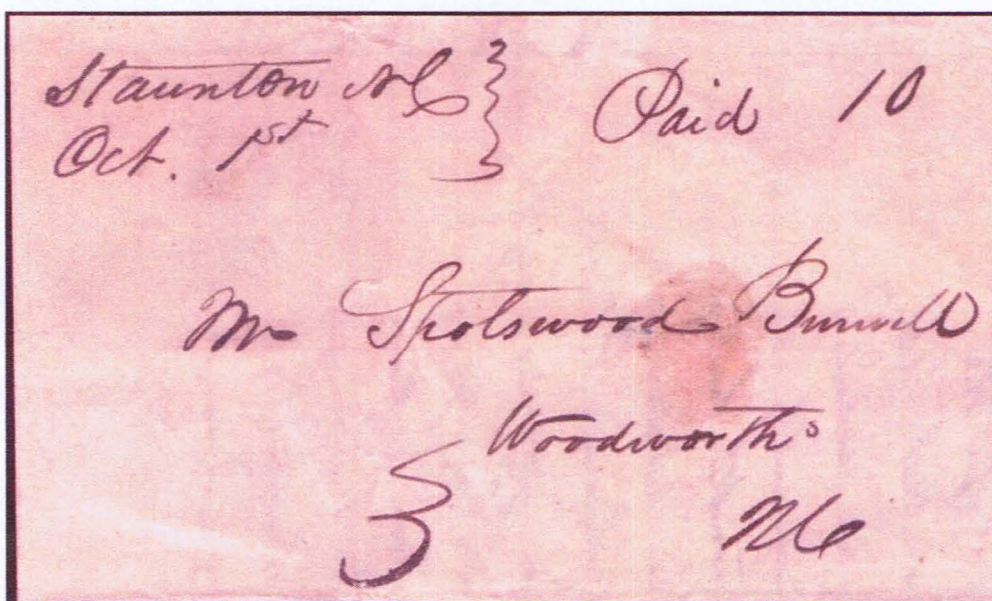 Staunton NC
Oct. 1st
Paid 10
Mr Spotswood Burwell
Woodworths
NC